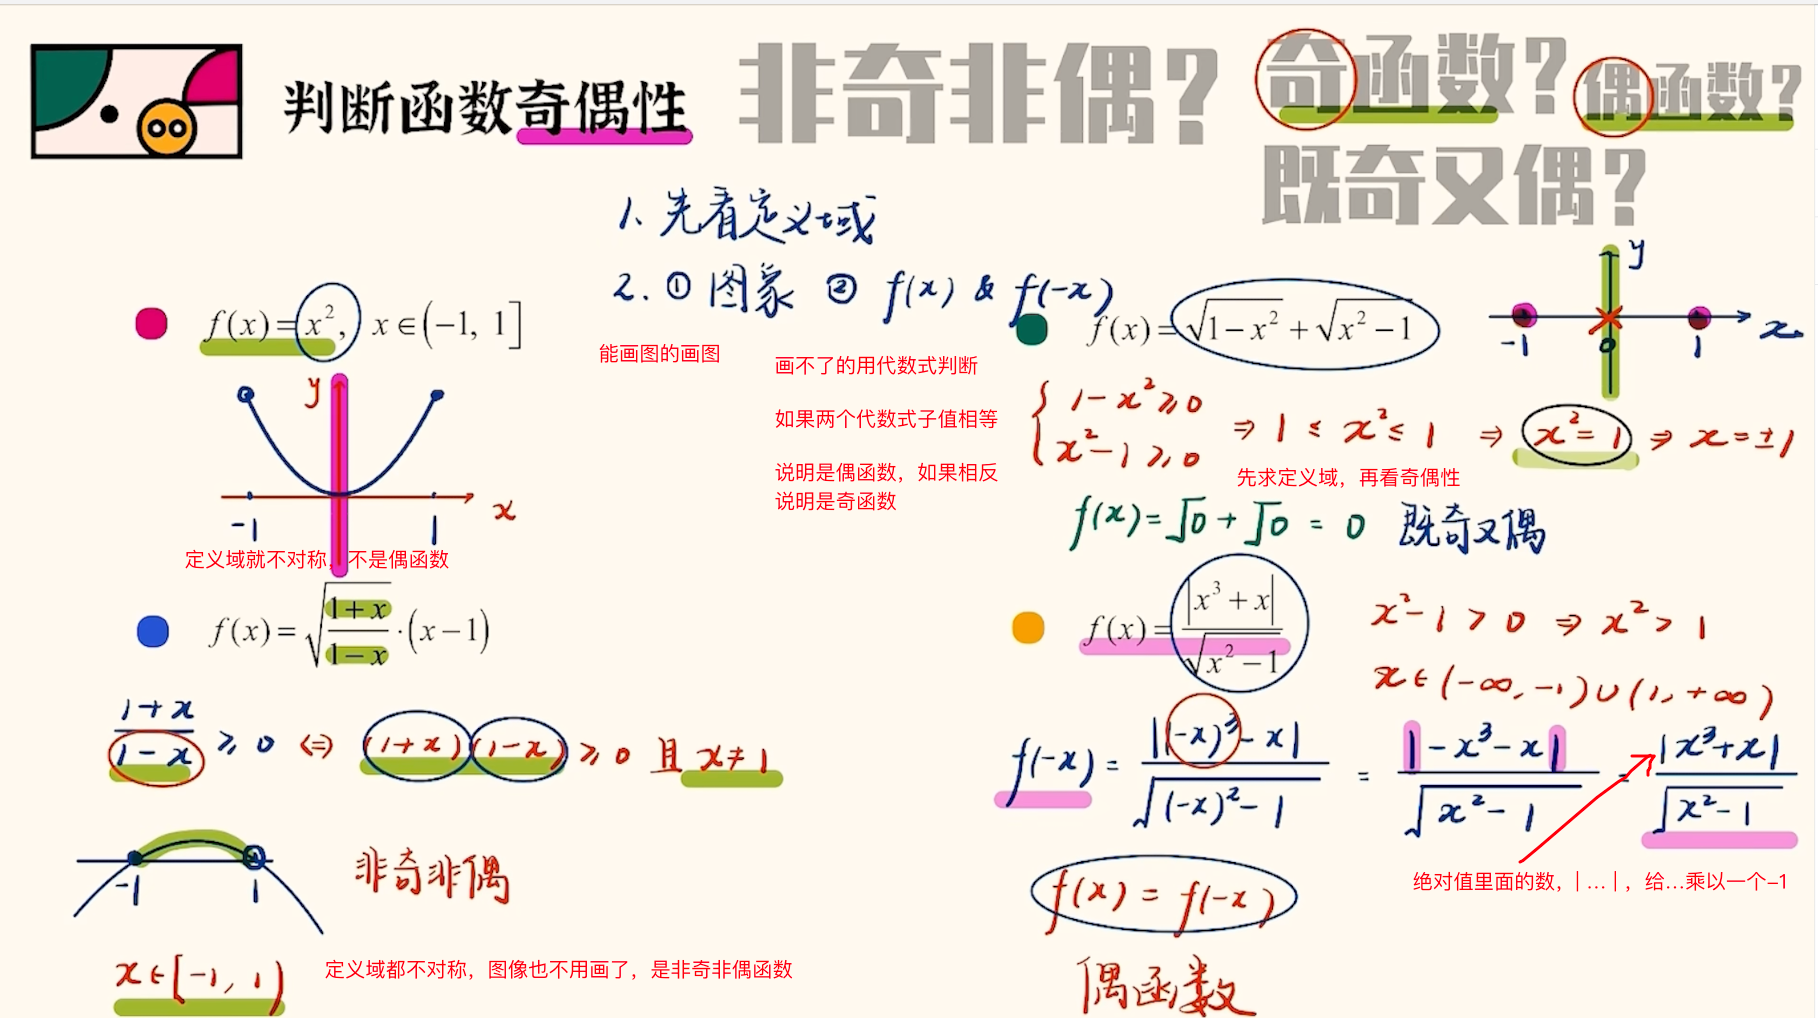 判断函数奇偶性
非奇非偶?
奇函数?
偶函数?
既奇又偶?
1. 先看定义域
2. ① 图象 ② f(x) & f(-x)
能画图的画图
画不了的用代数式判断
如果两个代数式子值相等
说明是偶函数，如果相反
说明是奇函数
f(x)=x², x∈(-1, 1]
y
x
-1 1
定义域就不对称，不是偶函数
f(x)=√((1+x)/(1-x))·(x-1)
(1+x)/(1-x) ≥ 0 ⇔ (1+x)(1-x) ≥ 0 且 x≠1
-1 1
非奇非偶
x∈[-1, 1)
定义域都不对称，图像也不用画了，是非奇非偶函数
f(x)=√(1-x²)+√(x²-1)
y
x
-1 0 1
{ 1-x²≥0
x²-1≥0
⇒ 1 ≤ x² ≤ 1 ⇒ x²=1 ⇒ x=±1
先求定义域，再看奇偶性
f(x)=√0+√0 = 0 既奇又偶
f(x)=|x³+x|/√(x²-1)
x²-1 > 0 ⇒ x² > 1
x∈(-∞, -1)∪(1, +∞)
f(-x) = |(-x)³-x|/√((-x)²-1) = |-x³-x|/√(x²-1) = |x³+x|/√(x²-1)
绝对值里面的数，| ... |，给...乘以一个-1
f(x) = f(-x)
偶函数